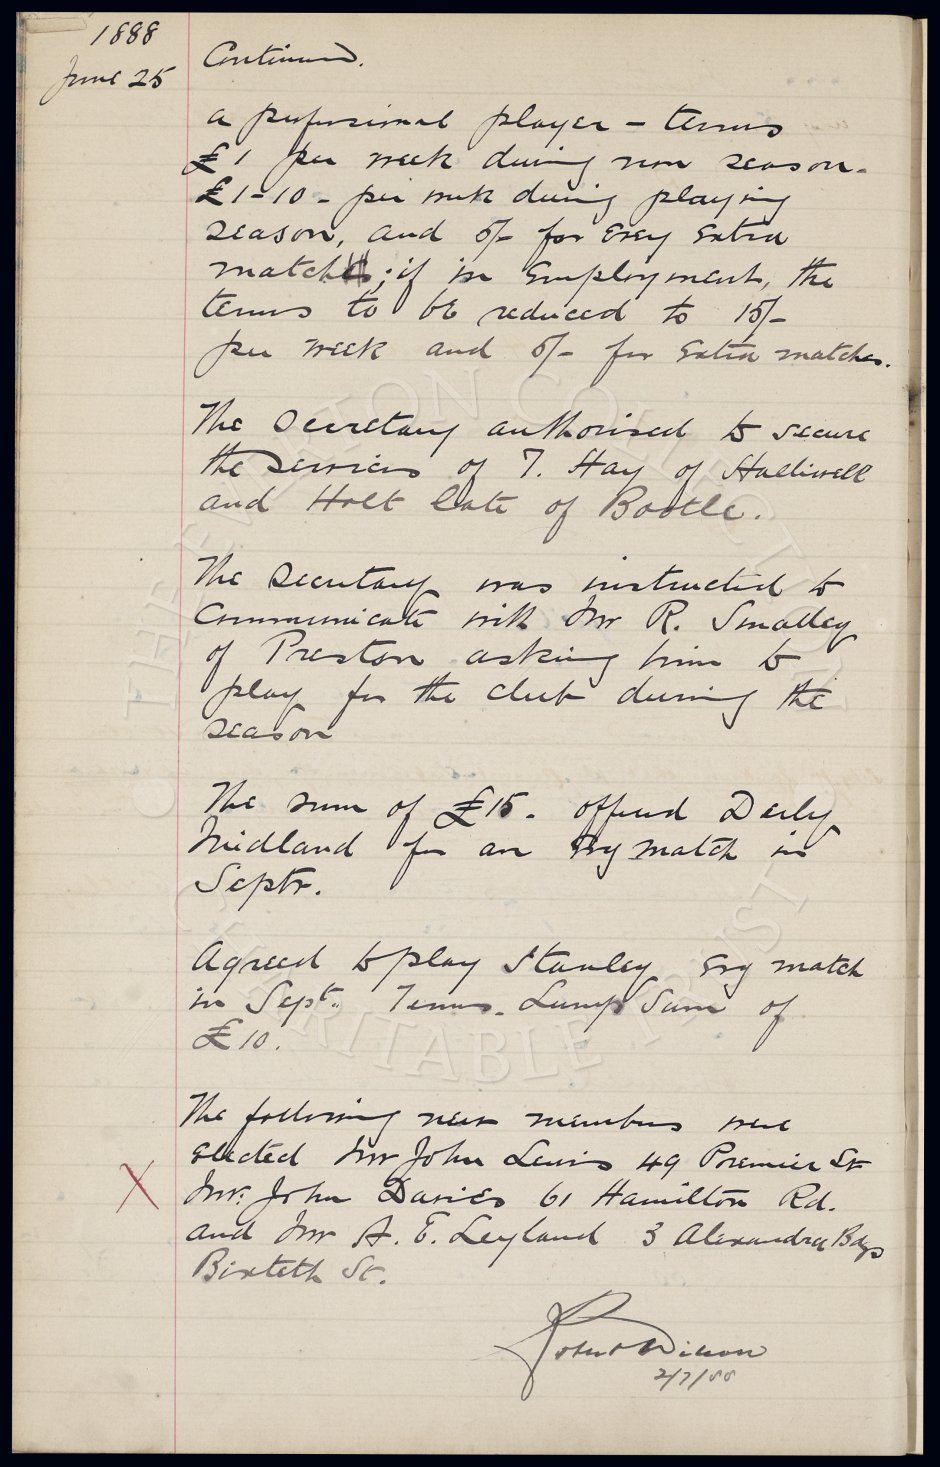 1888
June 25
Continued.
a professional player – terms
£1 per week during non season –
£1-10 – per week during playing
season, and 5/- for Evey Extra
match; if in Employment, the
terms to be reduced to 15/-
per week and 5/- for Extra matches.
The Secretary authorised to secure
the services of T. Hay of Halliwell
and Holt late of Bootle.
The Secretary was instructed to
Communicate with Mr R. Smalley
of Preston asking him to
play for the club during the
season
The sum of £15 – offered Derby
Midland for an Evg match in
Septr.
Agreed to play Stanley Evg match
in Sept. Terms – Lump Sum of
£10.
The following new members were
Elected Mr John Lewis 49 Premier St
Mr. John Davies 61 Hamilton Rd.
and Mr A. E. Leyland 3 Alexandra Bdgs
St.
2/7/88
THE EVERTON COLLECTION
CHARITABLE TRUST